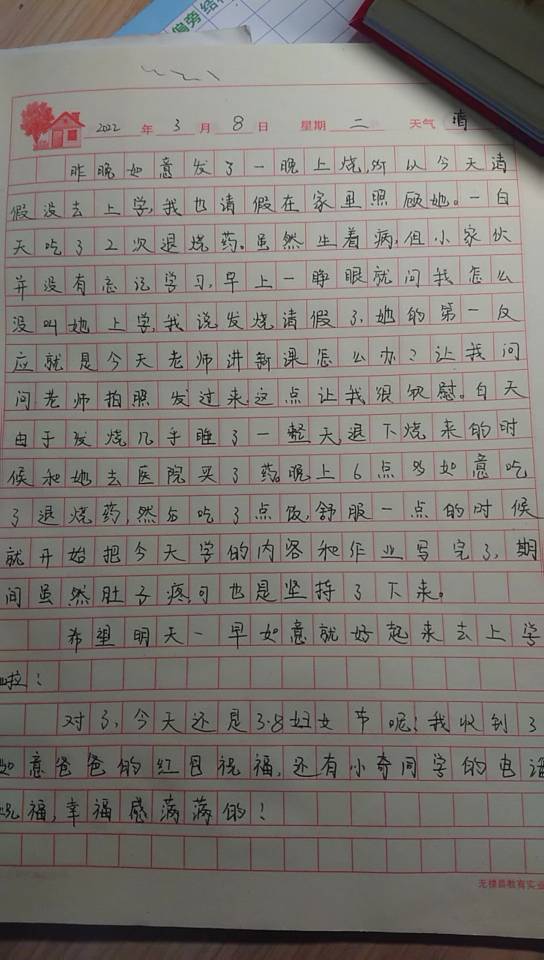 偏旁 结
2022 年 3 月 8 日 星期 二 天气 清
昨晚如意发了一晚上烧,所以今天请
假没去上学,我也请假在家里照顾她。一白
天吃了2次退烧药。虽然生着病,但小家伙
并没有忘记学习,早上一睁眼就问我怎么
没叫她上学,我说发烧请假了,她的第一反
应就是今天老师讲新课怎么办?让我问
问老师拍照发过来,这点让我很欣慰。白天
由于发烧几乎睡了一整天,退下烧来的时
候和她去医院买了药。晚上6点多如意吃
了退烧药,然后吃了点饭,舒服一点的时候
就开始把今天学的内容和作业写完了,期
间虽然肚子疼,可也是坚持了下来。
希望明天一早如意就好起来去上学
啦!
对了,今天还是3.8妇女节呢!我收到了
如意爸爸的红包祝福,还有小奇同学的电话
祝福,幸福感满满的!
无棣县教育实业